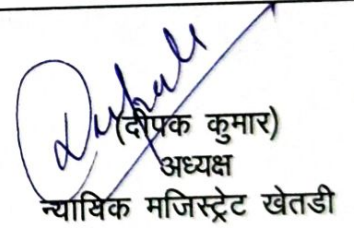 (दीपक कुमार)
अध्यक्ष
न्यायिक मजिस्ट्रेट खेतडी